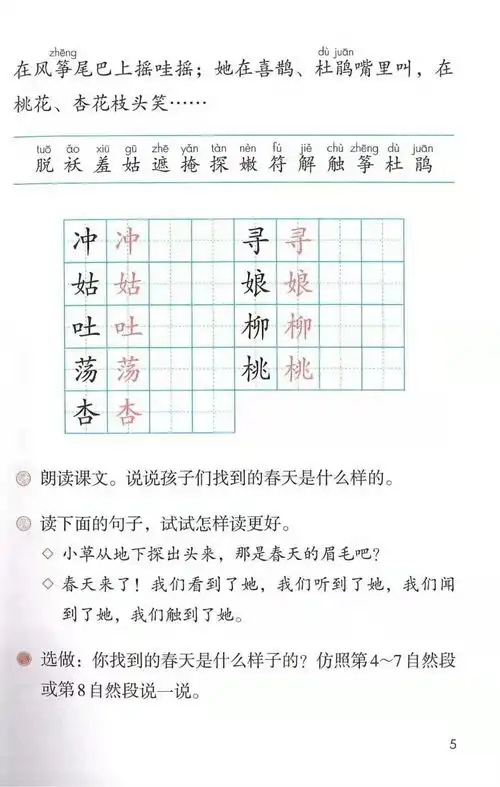 zhēng dù juān
在风筝尾巴上摇哇摇；她在喜鹊、杜鹃嘴里叫，在
桃花、杏花枝头笑……
tuō ǎo xiū gū zhē yǎn tàn nèn fú jiě chù zhēng dù juān
脱 袄 羞 姑 遮 掩 探 嫩 符 解 触 筝 杜 鹃
冲 冲 寻 寻
姑 姑 娘 娘
吐 吐 柳 柳
荡 荡 桃 桃
杏 杏
朗读课文。说说孩子们找到的春天是什么样的。
读下面的句子，试试怎样读更好。
◇ 小草从地下探出头来，那是春天的眉毛吧？
◇ 春天来了！我们看到了她，我们听到了她，我们闻
到了她，我们触到了她。
选做：你找到的春天是什么样子的？仿照第4～7自然段
或第8自然段说一说。
5